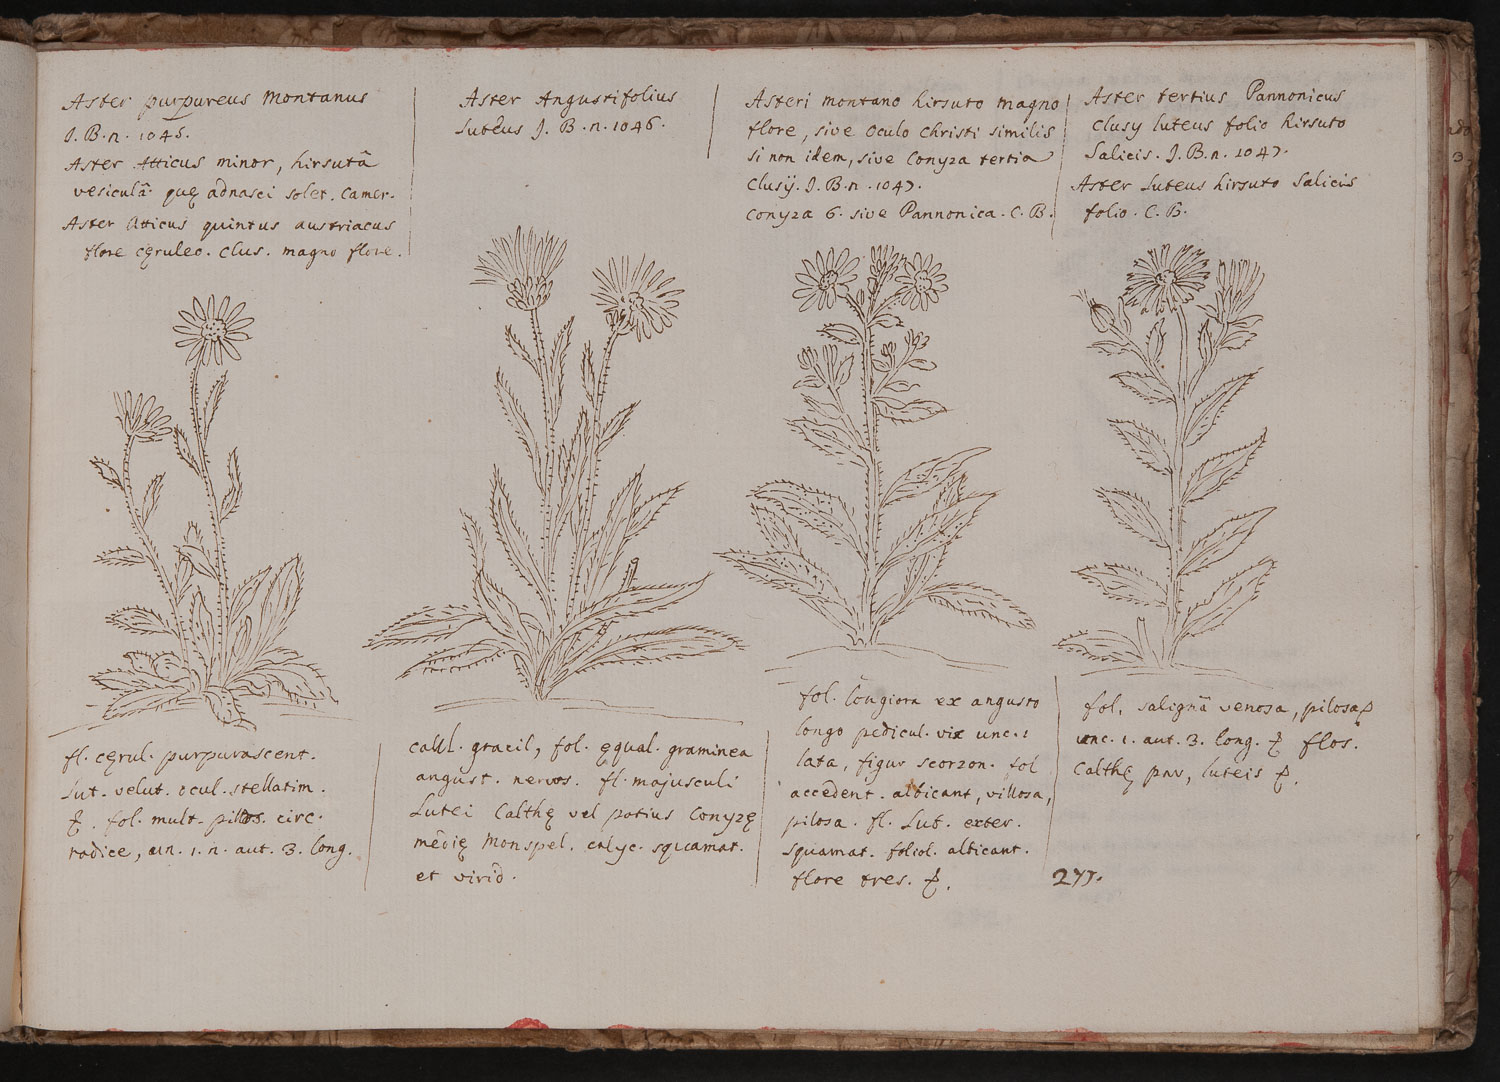 Aster purpureus Montanus
J. B. n. 1045.
Aster Atticus minor, hirsutâ
vesiculâ. quę adnasci solet. Camer.
Aster Atticus quintus austriacus
flore cęruleo. Clus. magno flore.
Aster Angustifolius
Luteus J. B. n. 1046.
Asteri montano hirsuto magno
flore, sive Oculo Christi similis
si non idem, sive Conyza tertia
Clusij. J. B. n. 1047.
Conyza 6. sive Pannonica. C. B.
Aster tertius Pannonicus
Clusy luteus folio hirsuto
Salicis. J. B. n. 1047.
Aster Luteus hirsuto Salicis
folio. C. B.
fl. cęrul. purpurascent.
Lut. velut. ocul. stellatim.
fol. mult. pilos. circ.
radice, un. 1. n. aut. 3. long.
caul. gracil, fol. ęqual. graminea
angust. nervos. fl. majusculi
Lutei Calthę vel potius Conyzę
médię Monspel. calyc. squamat.
et virid.
fol. longiora ex angusto
longo pedicul. vix unc. 1
lata, figur scorzon. fol
accedent. albicant, villosa,
pilosa. fl. Lut. exter.
squamat. foliol. albicant.
flore tres.
fol. salignâ venosa, pilosa
unc. 1. aut. 3. long. flos.
Calthę par, luteis
277.